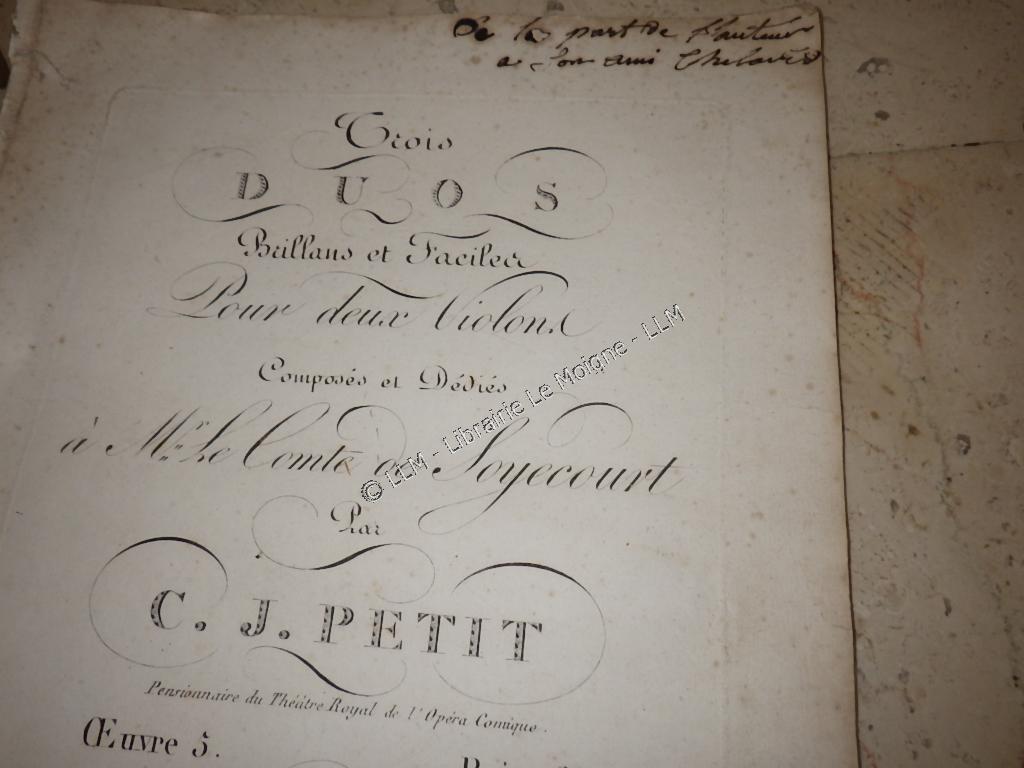 De la part de l'auteur
a son ami
Trois
DUOS
Brillans et Faciles
Pour deux Violons
Composés et Dédiés
à Mr. Le Comte de Soyecourt
Par
C. J. PETIT
Pensionnaire du Théâtre Royal de l'Opéra Comique.
Œuvre 5.
© LLM - Librairie Le Moigne - LLM